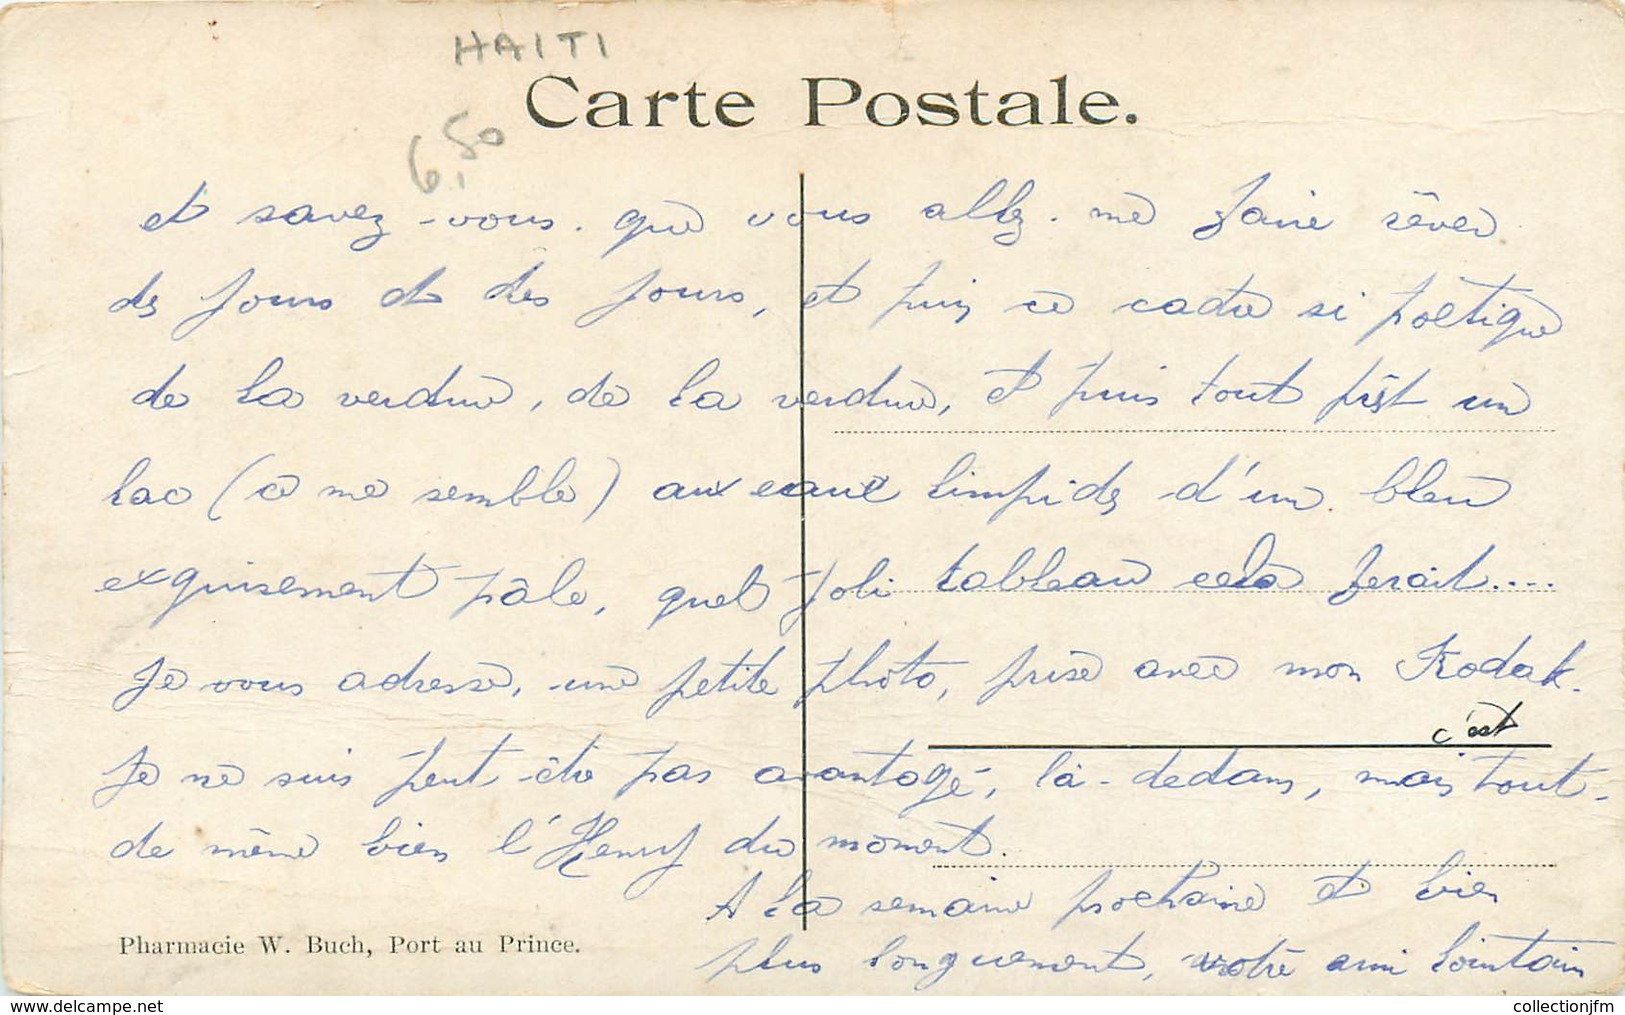 HAITI
Carte Postale.
6,50
et savez-vous. que vous allez. me faire rêver
des jours et des jours, et puis ce cadre si poètique
de la verdure, de la verdure, et puis tout prêt un
lac (ce me semble) aux eaux limpides d'un bleu
exquisement pâle, quel joli tableau cela ferait....
Je vous adresse, une petite photo, prise avec mon Kodak.
c'est
Je ne suis peut-être pas avantagé, là-dedans, mais tout-
de même bien l'Henry du moment.
A la semaine prochaine et bien
plus longuement, votre ami lointain
Pharmacie W. Buch, Port au Prince.
collectionjfm